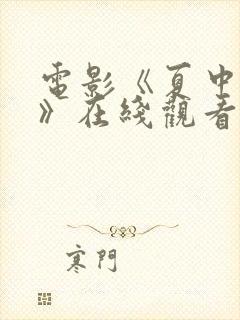 電影《夏中
》在綫觀看
寒門